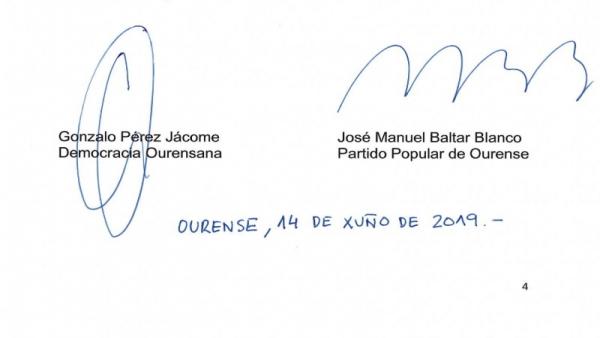 Gonzalo Pérez Jácome
Democracia Ourensana
José Manuel Baltar Blanco
Partido Popular de Ourense
OURENSE, 14 DE XUÑO DE 2019.-
4